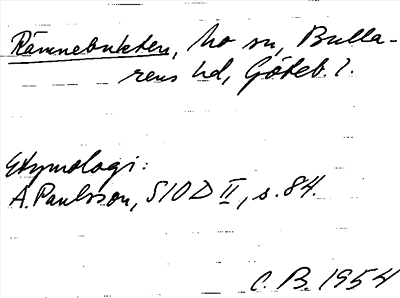 Rämnebukten, Mo sn, Bulla-
rens hd, Göteb. l.
Etymologi:
A. Paulsson, SIOD II, s. 84.
C. B. 1954